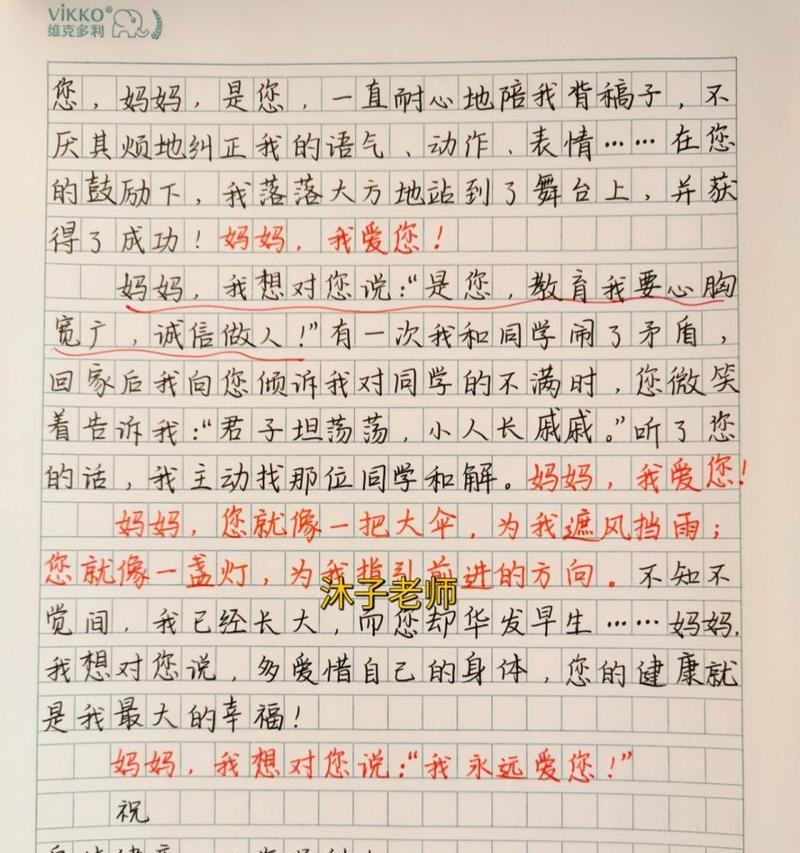 ViKKO®
维克多利
您，妈妈，是您，一直耐心地陪我背稿子，不
厌其烦地纠正我的语气、动作、表情……在您
的鼓励下，我落落大方地站到了舞台上，并获
得了成功！妈妈，我爱您！
妈妈，我想对您说：“是您，教育我要心胸
宽广，诚信做人！”有一次我和同学闹了矛盾，
回家后我向您倾诉我对同学的不满时，您微笑
着告诉我：“君子坦荡荡，小人长戚戚。”听了您
的话，我主动找那位同学和解。妈妈，我爱您！
妈妈，您就像一把大伞，为我遮风挡雨；
您就像一盏灯，为我指引前进的方向。不知不
沐子老师
觉间，我已经长大，而您却华发早生……妈妈，
我想对您说，多爱惜自己的身体，您的健康就
是我最大的幸福！
妈妈，我想对您说：“我永远爱您！”
祝